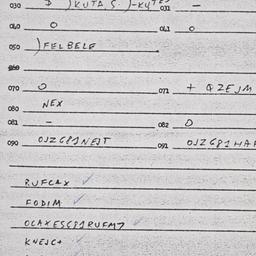 030 ) KUTA S. )-KUTES
031 -
040 O
041 O
050 ) FELBELE
060
070 O
071 + QZEJM
080 NEX
081 -
082 D
090 OJZGP1NEJT
091 OJZGP1HAF
RUFCAX ✓
FODIM ✓
OCAXESGP1RUFM7
KNEJC+